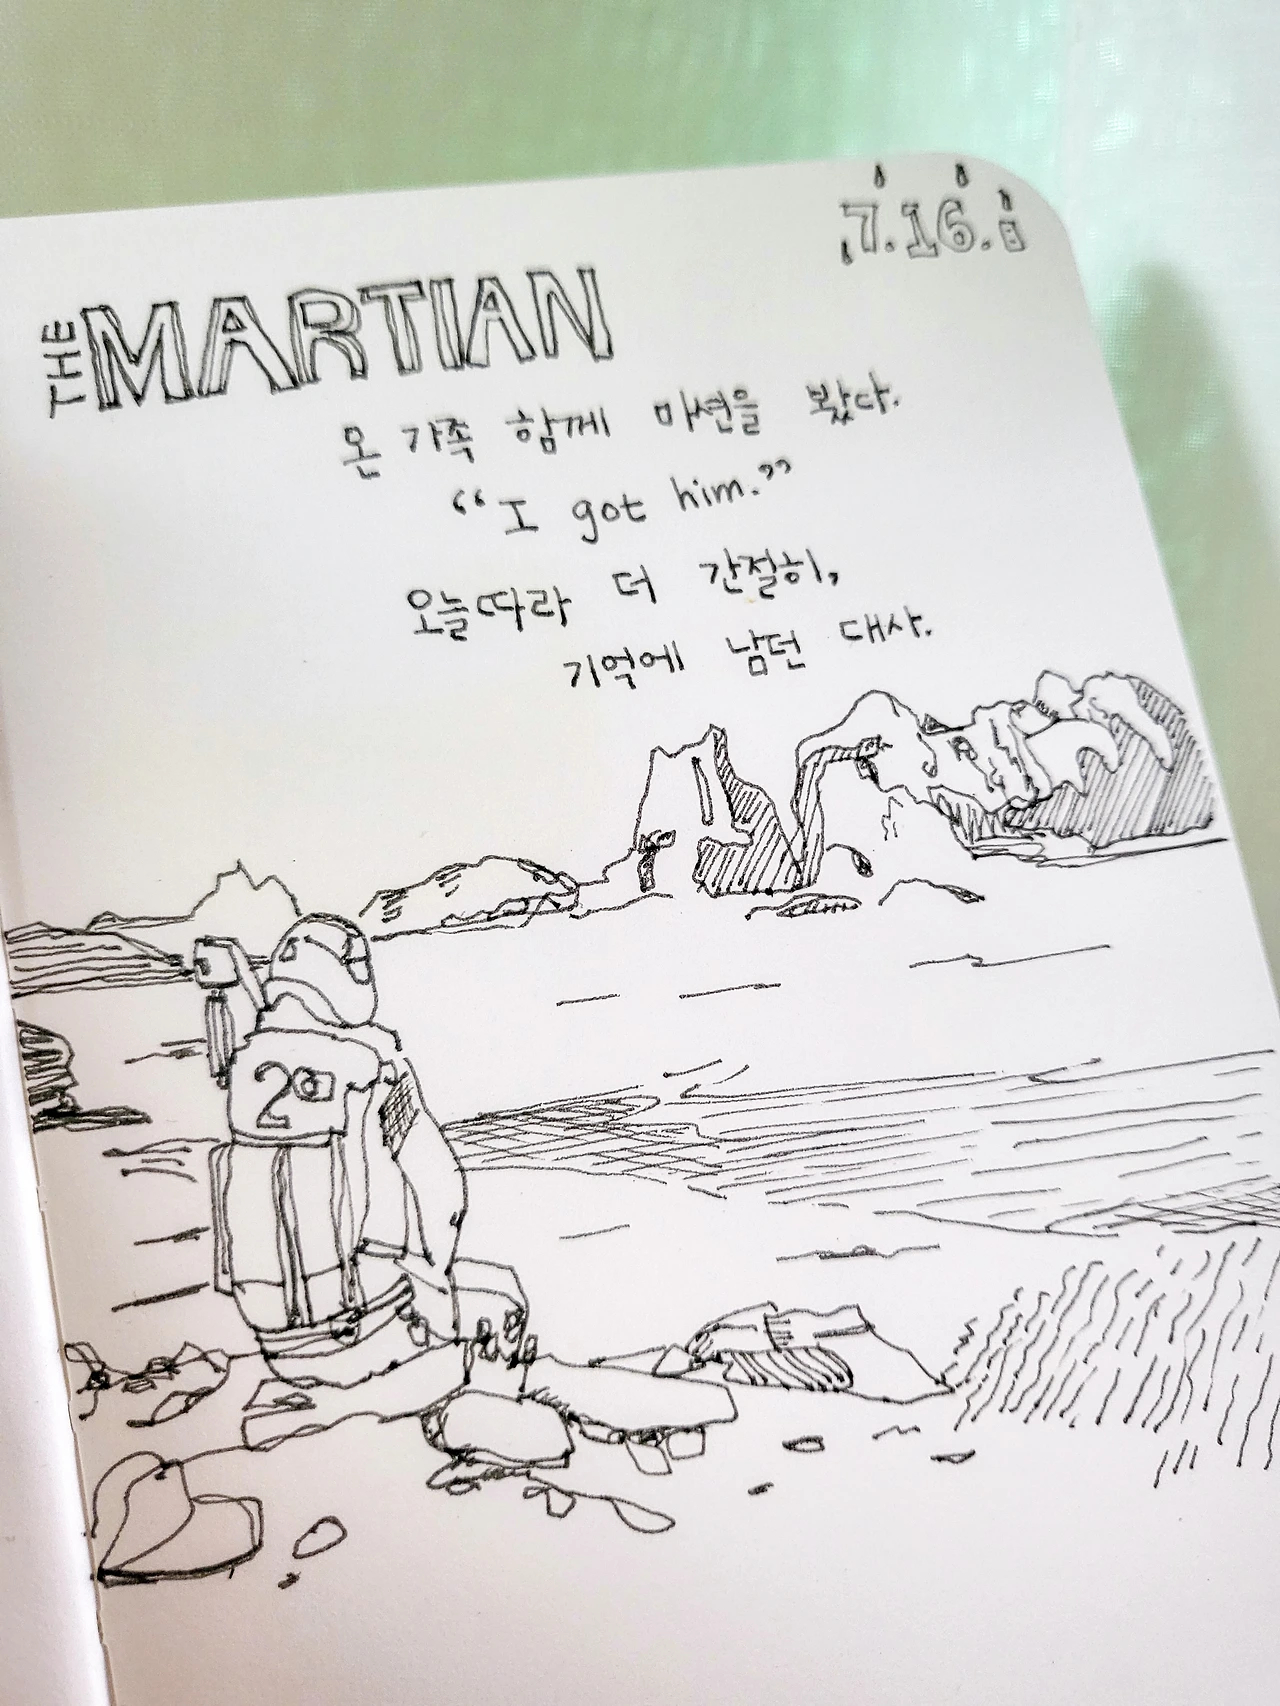 7.16.
THE MARTIAN
온 가족 함께 마션을 봤다.
“I got him.”
오늘따라 더 간절히,
기억에 남던 대사.
20